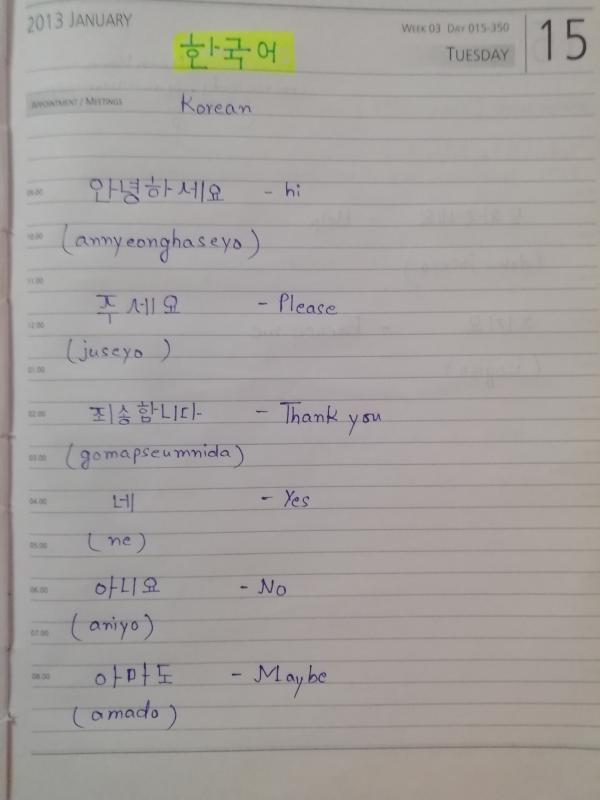 2013 JANUARY
WEEK 03 DAY 015-350
TUESDAY
15
한국어
APOINTMENT / MEETINGS
Korean
09.00 안녕하세요 - hi
10.00 (annyeonghaseyo)
11.00
주세요 - Please
12.00
(juseyo)
01.00
02.00 죄송함니다 - Thank you
03.00 (gomapseumnida)
04.00 네 - Yes
05.00 (ne)
06.00 아니요 - No
07.00 (aniyo)
08.00 아마도 - Maybe
(amado)